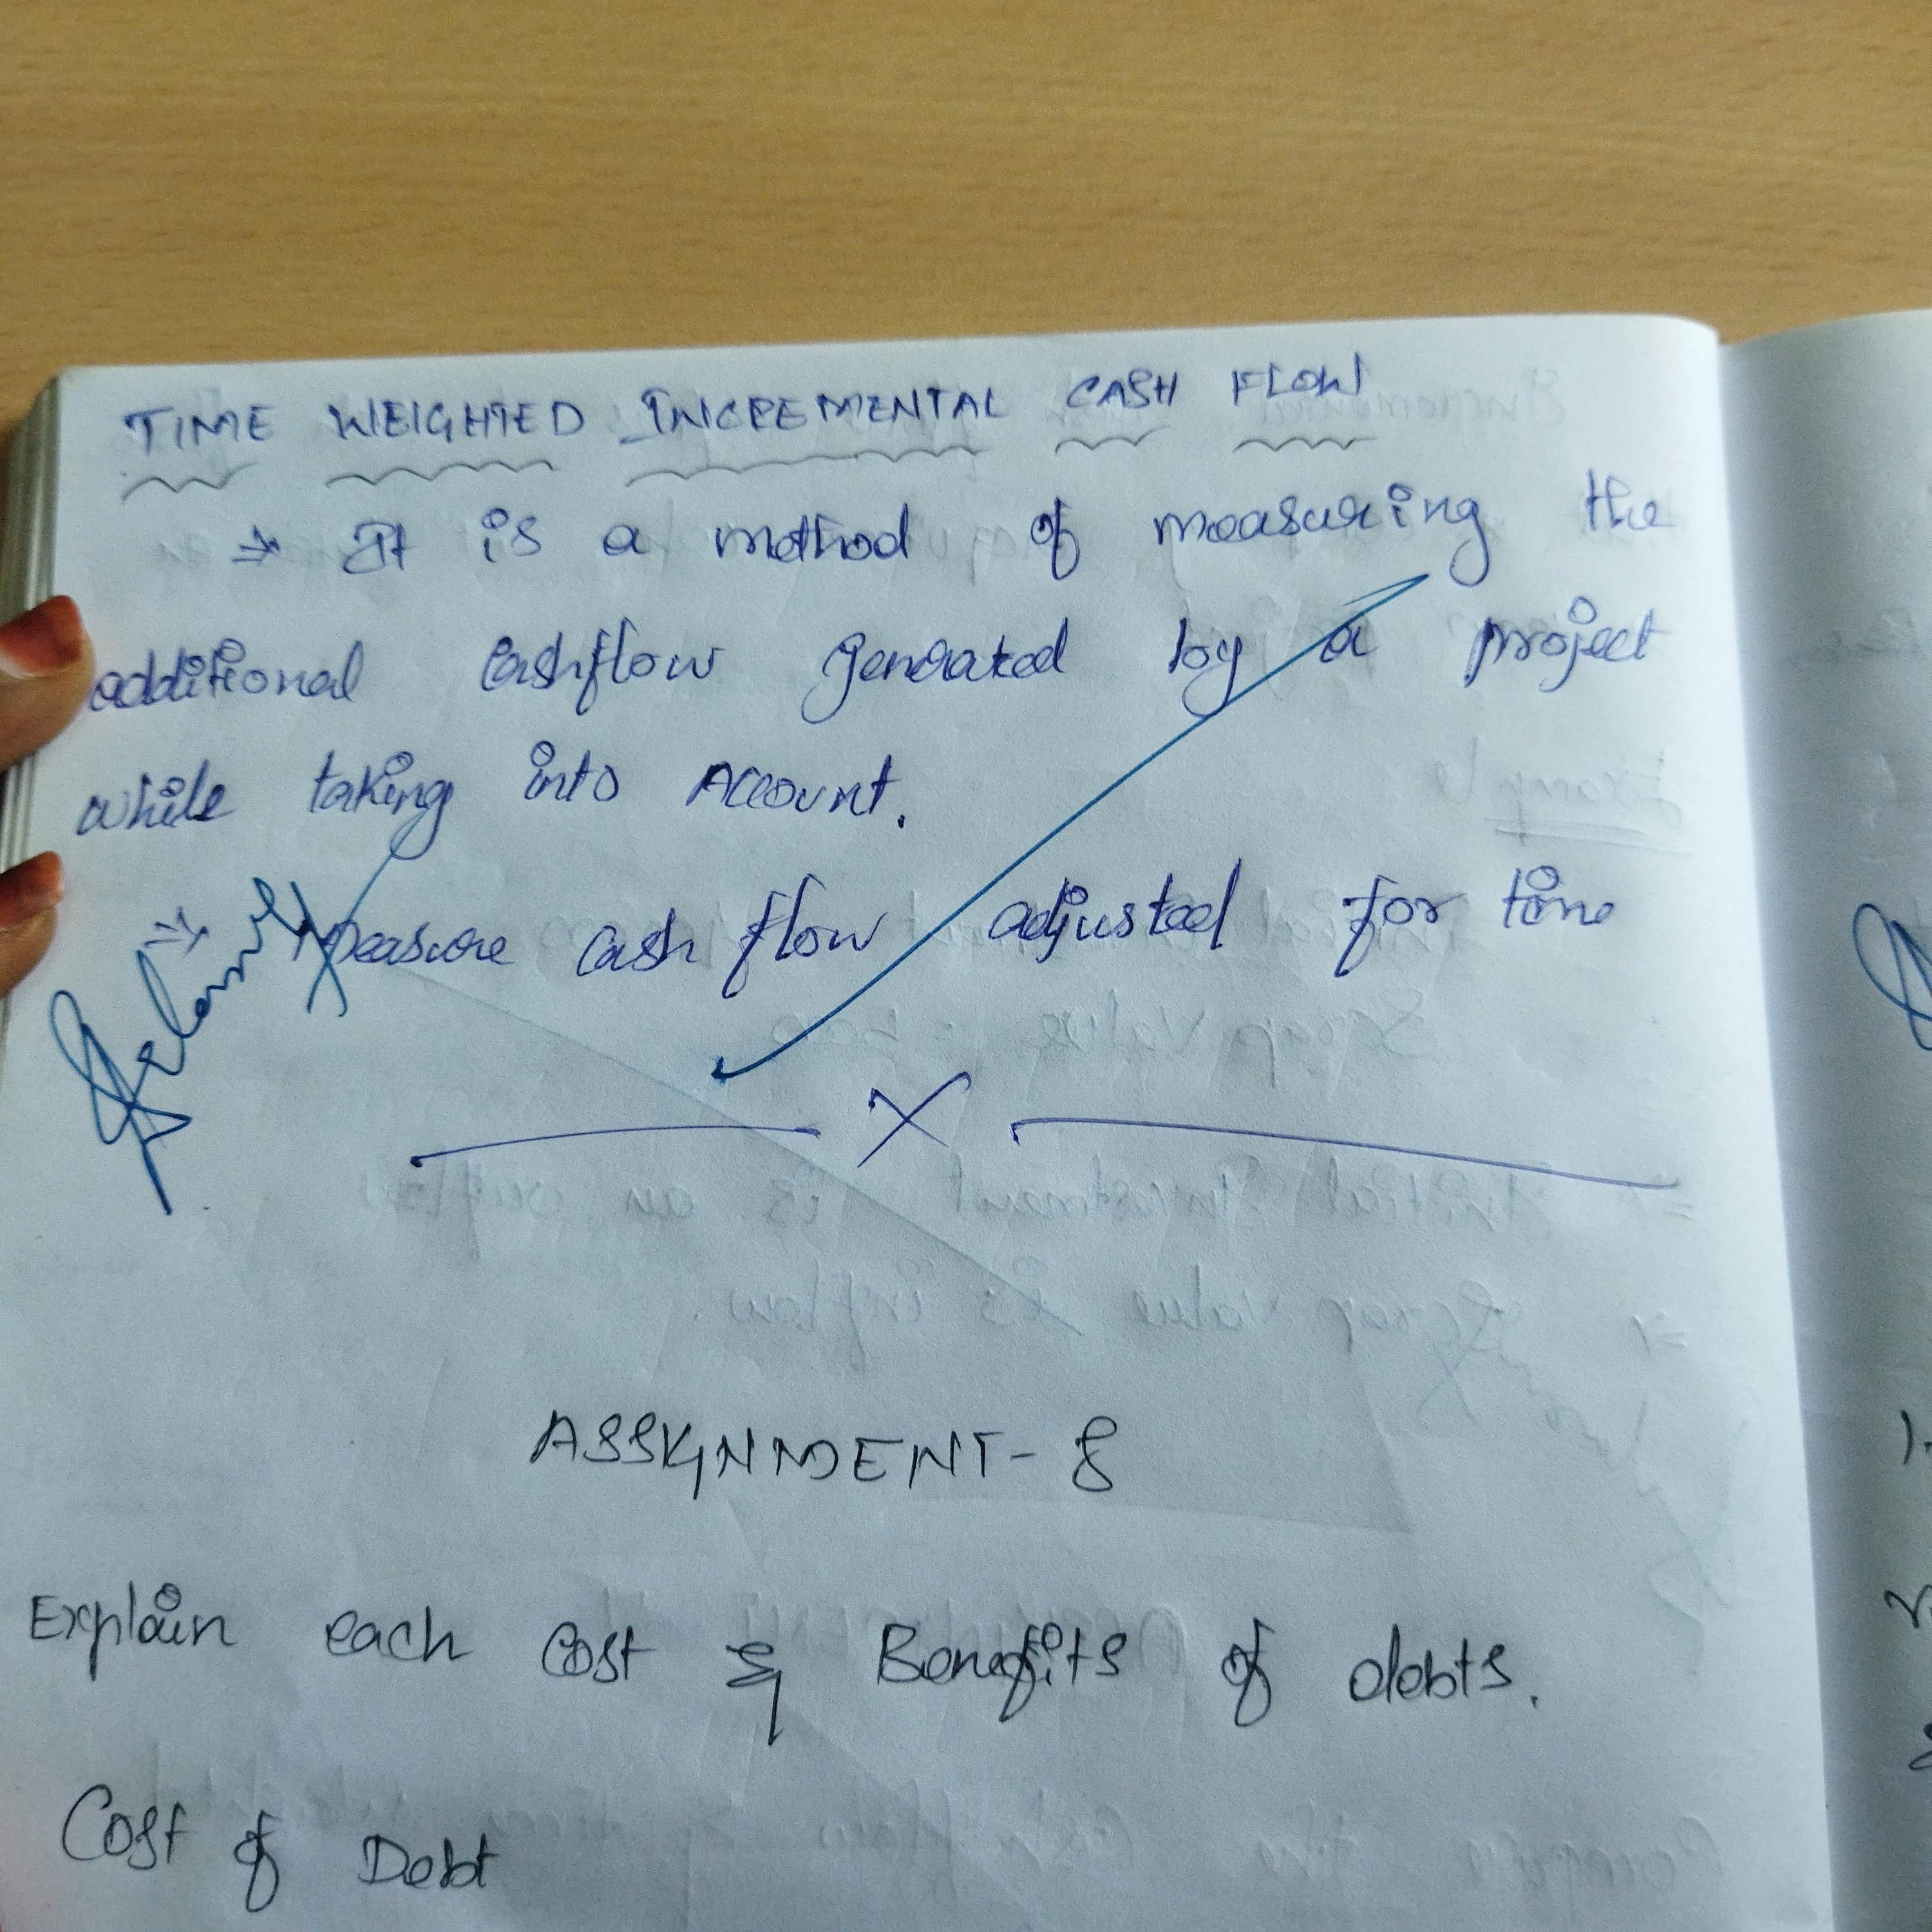 TIME WEIGHTED INCREMENTAL CASH FLOW
→ It is a method of measuring the
additional cashflow generated by a project
while taking into Account.
⇒ Measure cash flow adjusted for time
X
ASSIGNMENT-8
Explain each Cost & Benefits of debts.
Cost of Debt